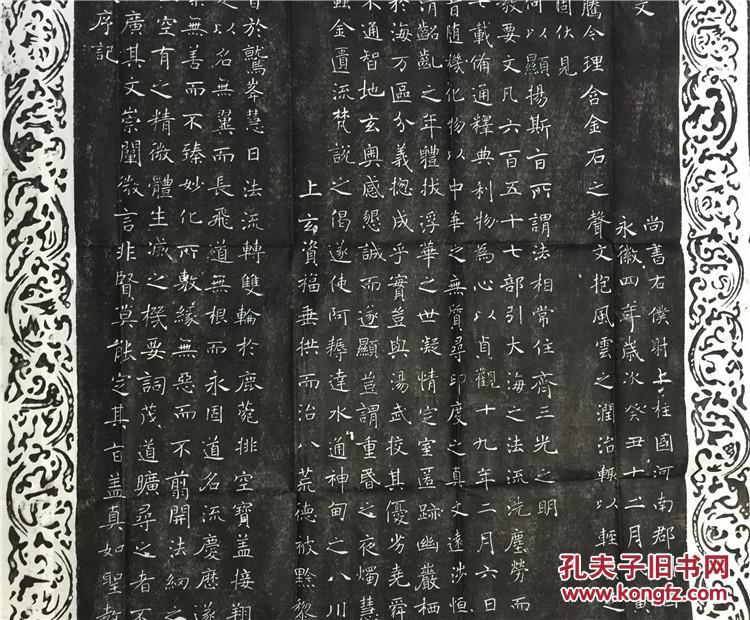 序記
廣其文崇闡微言非賢莫能定其旨盖真如聖教
空有之精微體生滅之機要詞茂道曠尋之者不
無善而不臻妙化所敷緣無惡而不翦開法網之
之以名無翼而長飛道無根而永固道名流慶歷遂
旨於鷲峯慧日法流轉雙輪於鹿菀排空寶盖接翔
上玄資福垂拱而治八荒德被黔黎
蠹金匱流梵說之偈遂使阿耨達水通神甸之八川
不通智地玄奧感懇誠而遂顯豈謂重昏之夜燭慧
於海万區分義揔成乎實豈與湯武挍其優劣堯舜
清齠齓之年體拔浮華之世凝情定室匿跡幽巖栖
旨随機化物以中華之無質尋印度之真文遠涉恒
七載備通釋典利物為心以貞觀十九年二月六日
教要文凡六百五十七部引大海之法流洗塵勞而
何以顯揚斯旨所謂法相常住齊三光之明
固伏見
騰今理含金石之聲文抱風雲之潤治輒以輕
文
永徽四年歲次癸丑十二月
尚書右僕射上柱國河南郡
孔夫子旧书网
www.kongfz.com